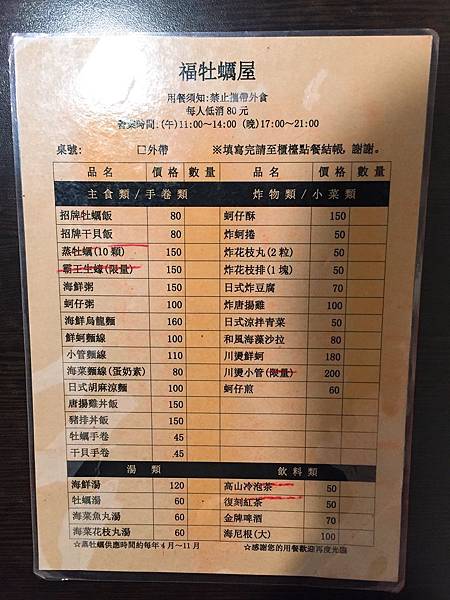 福牡蠣屋
用餐須知:禁止攜帶外食
每人低消 80 元
營業時間:(午)11:00～14:00 (晚)17:00～21:00
桌號: □外帶 ※填寫完請至櫃檯點餐結帳,謝謝。
品名 價格 數量 品名 價格 數量
主食類/手卷類 炸物類/小菜類
招牌牡蠣飯 80 蚵仔酥 150
招牌干貝飯 80 炸蚵捲 50
蒸牡蠣(10 顆) 150 炸花枝丸(2 粒) 50
霸王生蠔(限量) 150 炸花枝排(1 塊) 50
海鮮粥 150 日式炸豆腐 70
蚵仔粥 100 炸唐揚雞 100
海鮮烏龍麵 160 日式涼拌青菜 50
鮮蚵麵線 100 和風海藻沙拉 80
小管麵線 110 川燙鮮蚵 180
海菜麵線(蛋奶素) 80 川燙小管(限量) 200
日式胡麻涼麵 100 蚵仔煎 60
唐揚雞丼飯 100
豬排丼飯 100
牡蠣手卷 45
干貝手卷 45
湯類 飲料類
海鮮湯 120 高山冷泡茶 50
牡蠣湯 60 復刻紅茶 50
海菜魚丸湯 60 金牌啤酒 70
海菜花枝丸湯 60 海尼根(大) 100
☆蒸牡蠣供應時間約每年 4 月～11 月 ☆感謝您的用餐歡迎再度光臨